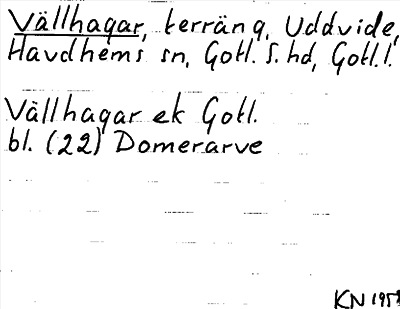 Vällhagar, terräng, Uddvide,
Havdhems sn, Gotl. S. hd, Gotl. l.
Vällhagar ek Gotl.
bl. (22) Domerarve
KN